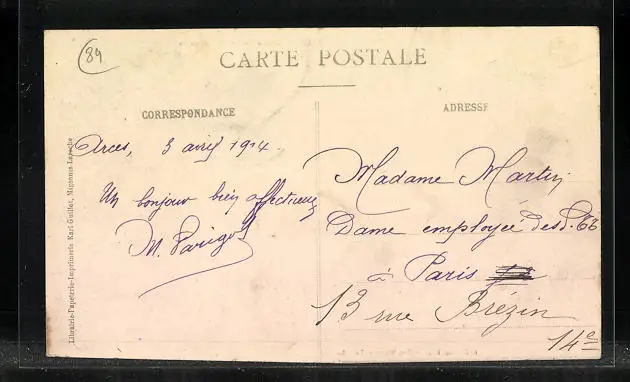 89
CARTE POSTALE
CORRESPONDANCE
ADRESSE
Arces, 3 avril 1914.
Un bonjour bien affectueux
M. Parigot
Madame Martin
Dame employée des
à Paris
13 rue Brézin
14e
Librairie-Papeterie-Imprimerie Karl Guillot, Migennes-Laroche